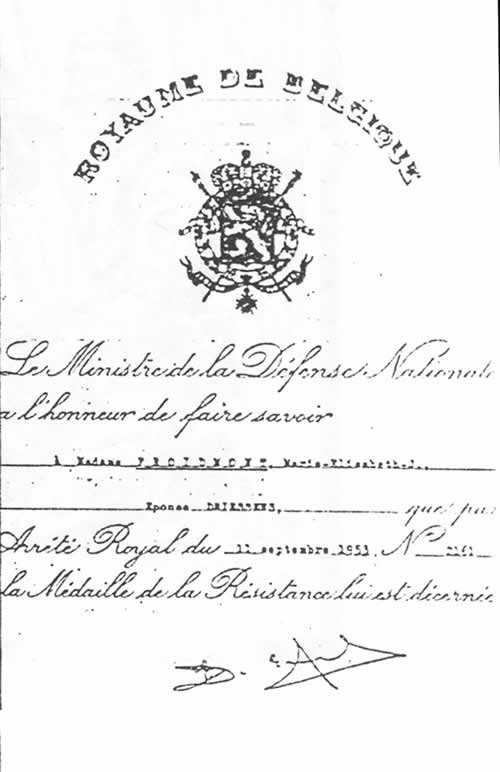 ROYAUME DE BELGIQUE
Le Ministre de la Défense Nationale
a l'honneur de faire savoir
à Madame FROIDMONT, Marie-Elisabeth-J.,
Epouse DRIESSENS, que par
Arrêté Royal du 11 septembre 1953, N°
la Médaille de la Résistance lui est décernée